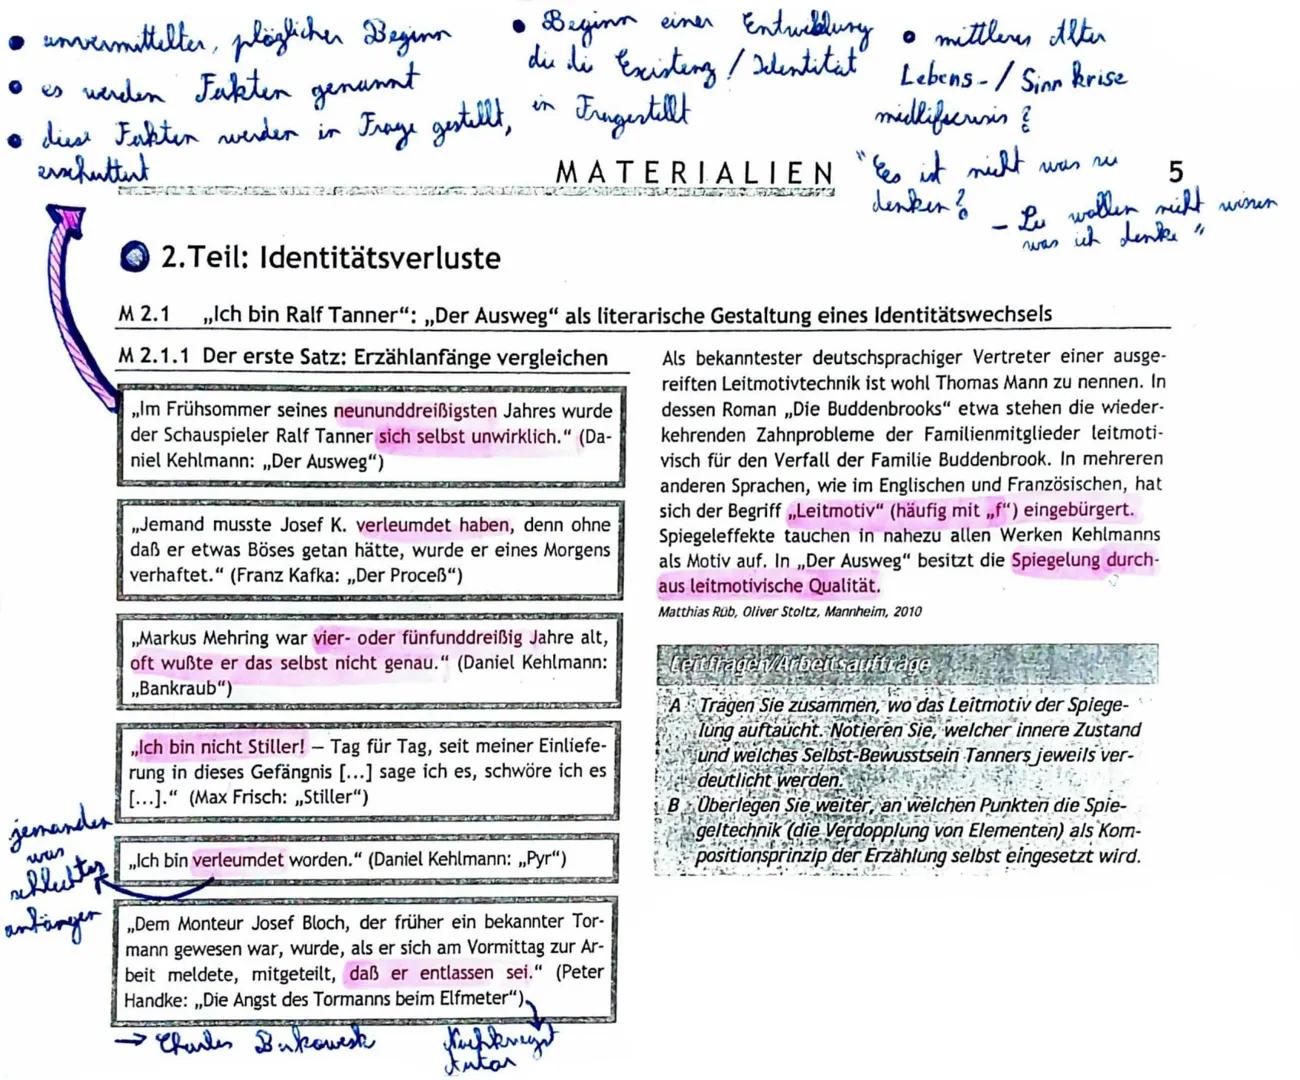 • unvermittelter, plözlicher Beginn
• es werden Fakten genannt
• diese Fakten werden in Frage gestellt,
erschüttert
• Beginn einer Entwicklung
die die Existenz / Identität
in Fragestellt
• mittleres Alter
Lebens- / Sinnkrise
midlifecrisis ?
"Es ist nicht was sie
denken?
- Sie wollen nicht wissen
was ich denke"
MATERIALIEN
5
2.Teil: Identitätsverluste
M 2.1 „Ich bin Ralf Tanner“: „Der Ausweg“ als literarische Gestaltung eines Identitätswechsels
M 2.1.1 Der erste Satz: Erzählanfänge vergleichen
„Im Frühsommer seines neununddreißigsten Jahres wurde
der Schauspieler Ralf Tanner sich selbst unwirklich.“ (Da-
niel Kehlmann: „Der Ausweg“)
„Jemand musste Josef K. verleumdet haben, denn ohne
daß er etwas Böses getan hätte, wurde er eines Morgens
verhaftet.“ (Franz Kafka: „Der Proceß“)
„Markus Mehring war vier- oder fünfunddreißig Jahre alt,
oft wußte er das selbst nicht genau.“ (Daniel Kehlmann:
„Bankraub“)
„Ich bin nicht Stiller! – Tag für Tag, seit meiner Einliefe-
rung in dieses Gefängnis [...] sage ich es, schwöre ich es
[...].“ (Max Frisch: „Stiller“)
jemanden
was
schlechtes
anhängen
„Ich bin verleumdet worden.“ (Daniel Kehlmann: „Pyr“)
„Dem Monteur Josef Bloch, der früher ein bekannter Tor-
mann gewesen war, wurde, als er sich am Vormittag zur Ar-
beit meldete, mitgeteilt, daß er entlassen sei.“ (Peter
Handke: „Die Angst des Tormanns beim Elfmeter“)
→ Charles Bukowsk
Nachkriegst
Autor
Als bekanntester deutschsprachiger Vertreter einer ausge-
reiften Leitmotivtechnik ist wohl Thomas Mann zu nennen. In
dessen Roman „Die Buddenbrooks“ etwa stehen die wieder-
kehrenden Zahnprobleme der Familienmitglieder leitmoti-
visch für den Verfall der Familie Buddenbrook. In mehreren
anderen Sprachen, wie im Englischen und Französischen, hat
sich der Begriff „Leitmotiv“ (häufig mit „f“) eingebürgert.
Spiegeleffekte tauchen in nahezu allen Werken Kehlmanns
als Motiv auf. In „Der Ausweg“ besitzt die Spiegelung durch-
aus leitmotivische Qualität.
Matthias Rüb, Oliver Stoltz, Mannheim, 2010
Leitfragen/Arbeitsaufträge
A Tragen Sie zusammen, wo das Leitmotiv der Spiege-
lung auftaucht. Notieren Sie, welcher innere Zustand
und welches Selbst-Bewusstsein Tanners jeweils ver-
deutlicht werden.
B Überlegen Sie weiter, an welchen Punkten die Spie-
geltechnik (die Verdopplung von Elementen) als Kom-
positionsprinzip der Erzählung selbst eingesetzt wird.